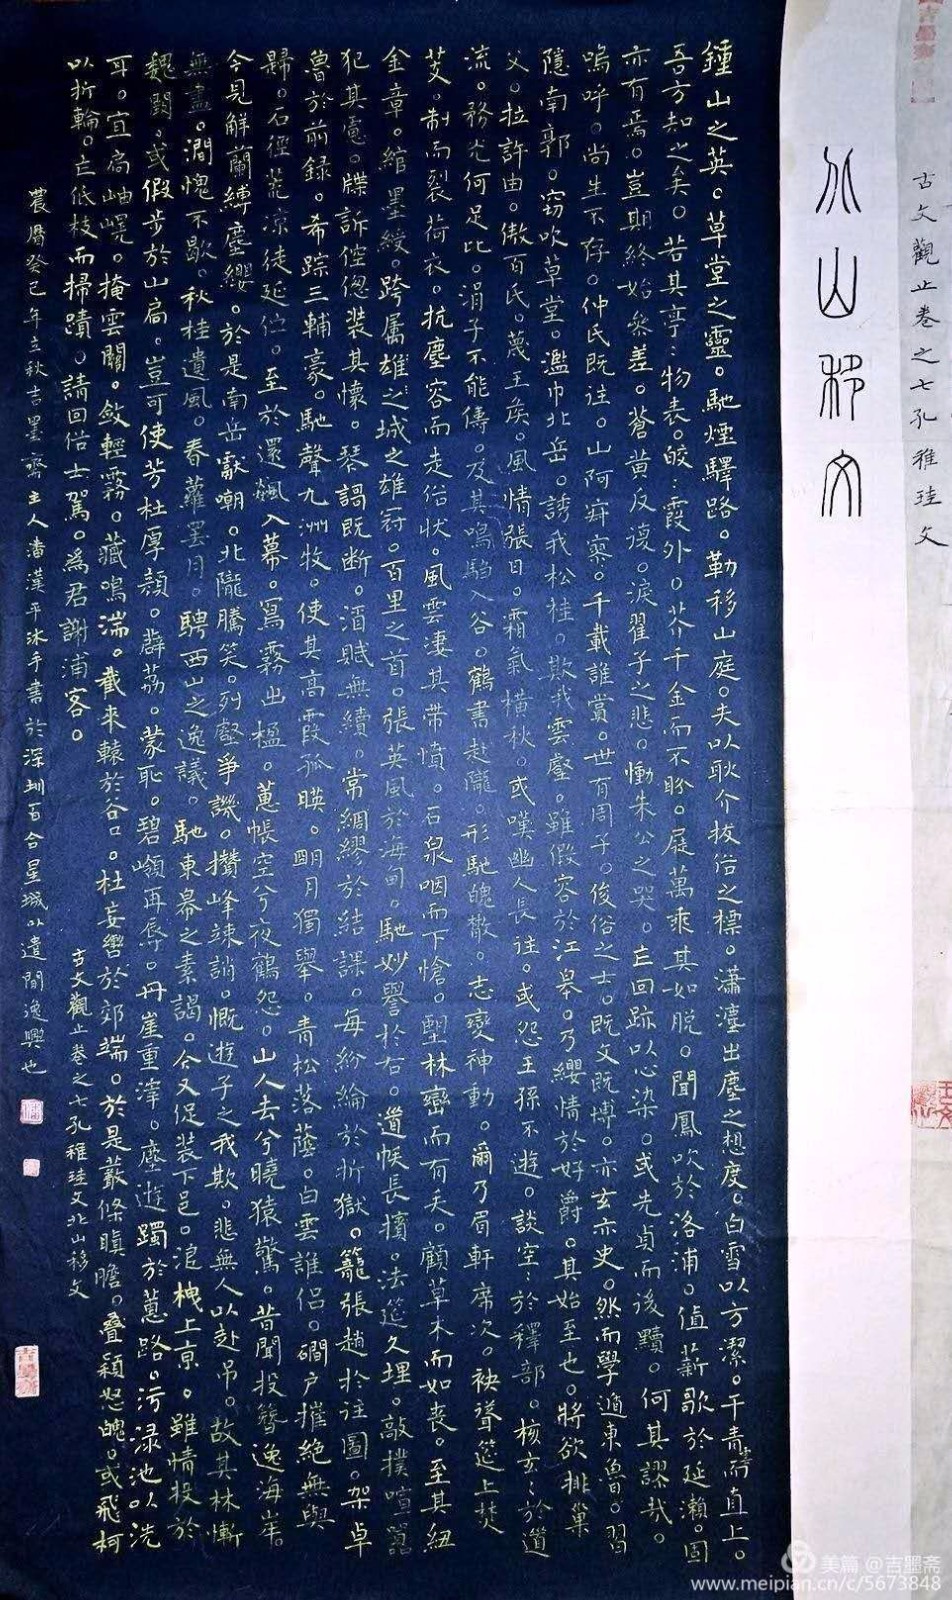 古文觀止卷之七孔稚珪文
北山移文
鍾山之英。草堂之靈。馳煙驛路。勒移山庭。夫以耿介拔俗之標。瀟灑出塵之想度。白雪以方潔。干青雲而直上。
吾方知之矣。若其亭:物表。皎:霞外。芥千金而不盼。屣萬乘其如脫。聞鳳吹於洛浦。值薪歌於延瀨。固
亦有焉。豈期終始參差。蒼黃反復。淚翟子之悲。慟朱公之哭。乍回跡以心染。或先貞而後黷。何其謬哉。
嗚呼。尚生不存。仲氏既往。山阿寂寥。千載誰賞。世有周子。俊俗之士。既文既博。亦玄亦史。然而學遁東魯。習
隱南郭。窃吹草堂。濫巾北岳。誘我松桂。欺我雲壑。雖假容於江皋。乃纓情於好爵。其始至也。將欲排巢
父。拉許由。傲百氏。蔑王侯。風情張日。霜氣橫秋。或嘆幽人長往。或怨王孫不遊。談空:於釋部。核玄:於道
流。務光何足比。涓子不能儔。及其鳴騶入谷。鶴書赴隴。形馳魄散。志變神動。爾乃眉軒席次。袂聳筵上。焚
芰。制而裂荷衣。抗塵容而走俗狀。風雲淒其帶憤。石泉咽而下愴。望林巒而有失。顧草木而如喪。至其紐
金章。綰墨綬。跨属雄之城之雄冠。百里之首。張英風於海甸。馳妙譽於右。道帙長擯。法筵久埋。敲撲喧囂
犯其慮。牒訴倥傯裝其懷。琴謌既断。酒賦無續。常綢繆於結課。每紛綸於折獄。籠張趙於往圖。架卓
魯於前録。希踪三輔豪。馳聲九洲牧。使其高霞孤映。明月獨舉。青松落蔭。白雲誰侶。磵户摧絕無與
歸。石徑荒涼徒延佇。至於還飆入幕。寫霧出楹。蕙帳空兮夜鶴怨。山人去兮曉猿驚。昔聞投簪逸海岸。
今見解蘭縛塵纓。於是南岳獻嘲。北隴騰笑。列壑爭譏。攢峰竦誚。慨遊子之我欺。悲無人以赴吊。故其林慚
無盡。澗愧不歇。秋桂遺風。春蘿罷月。騁西山之逸議。馳東皋之素謁。今又促裝下邑。浪栧上京。雖情投於
魏闕。或假步於山扃。豈可使芳杜厚顔。薜荔。蒙恥。碧嶺再辱。丹崖重滓。塵遊躅於蕙路。污渌池以洗
耳。宜扃岫幌。掩雲關。斂輕霧。藏鳴湍。截來轅於谷口。杜妄轡於郊端。於是叢條瞋膽。疊穎怒魄。或飛柯
以折輪。乍低枝而掃蹟。請回俗士駕。為君謝浦客。
古文觀止卷之七孔稚珪文北山移文
農曆癸巳年立秋吉墨齋主人潘漢平沐手書於深圳百合星城以遣閒逸興也
美篇 @吉墨斋
www.meipian.cn/c/5673848